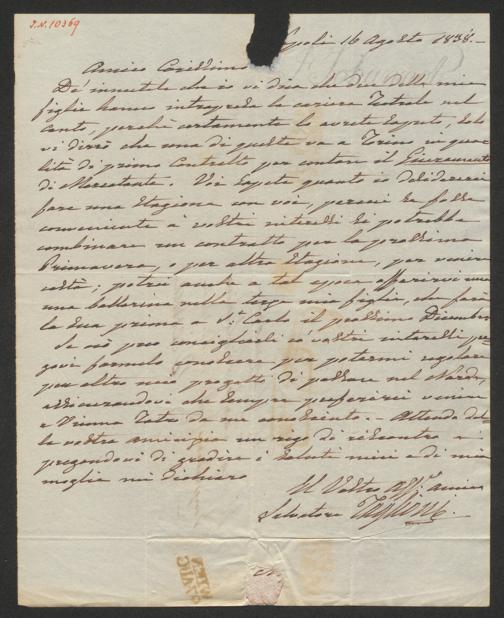 I.N. 10369
poli 16 Agosto 1838.
Amico Carissimo
È inutile che io vi dica che due delle mie
figlie hanno intrapreso la cariera Teatrale nel
canto, perchè certamente lo avrete saputo, solo
vi dirò che una di queste va a Torino in qua=
lità di primo Contralto per cantare il Giuramento
di Mercadante. Voi sapete quanto io desidererei
fare una stazione con voi, perciò se fosse
conveniente a vostri interessi si potrebbe
combinare un contratto per la prossima
Primavera, o per altra stazione, per venire
costì; potrei anche a tal epoca offerirvi
una ballerina nella terza mia figlia, che farà
la sua prima a S. Carlo il prossimo Dicembre
Se ciò può conciliarsi co' vostri interessi pre=
govi farmelo conoscere per potermi regolare
per altro mio progetto di passare nel Nord,
assicurandovi che sempre preferirei venire
a Vienna Teatro da me conosciuto. Attendo dal=
la vostra amicizia un rigo di riscontro e
pregandovi di gradire i saluti miei e di mia
moglie mi dichiaro
Il Vostro aff. amico
Salvatore Taglioni.